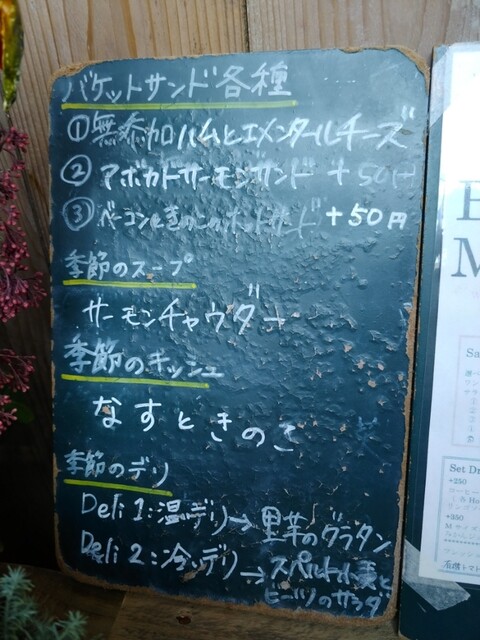 バケットサンド各種
①無添加ハムとエメンタールチーズ
②アボカドサーモンサンド +50円
③ベーコンときのこのホットサンド +50円
季節のスープ
サーモンチャウダー
季節のキッシュ
なすときのこ
季節のデリ
Deli 1:温デリ→里芋のグラタン
Deli 2:冷デリ→スペルト小麦と
ビーツのサラダ
Set Dr
+250
+350